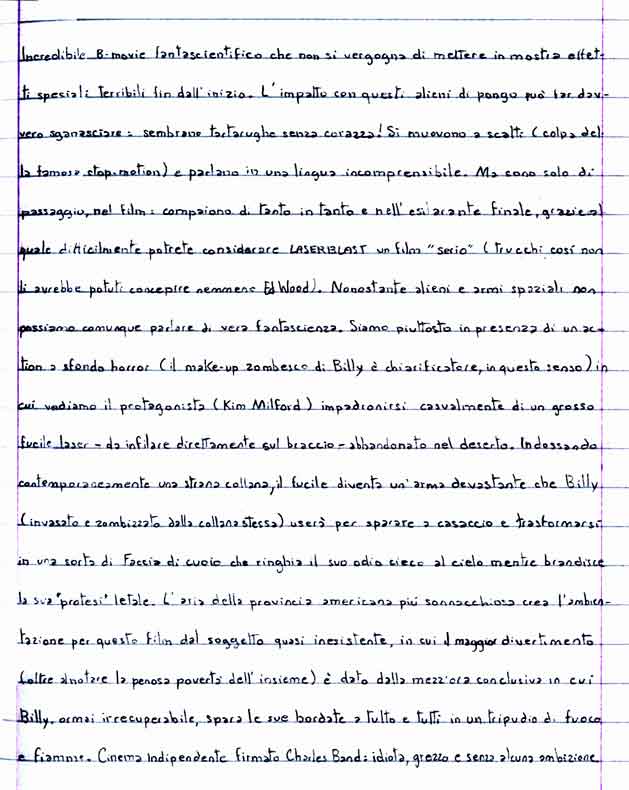 Incredibile B-movie fantascientifico che non si vergogna di mettere in mostra effet-
ti speciali terribili fin dall'inizio. L'impatto con questi alieni di pongo può far dav-
vero sganasciare: sembrano tartarughe senza corazza! Si muovono a scatti (colpa del
la famosa stop-motion) e parlano in una lingua incomprensibile. Ma sono solo di
passaggio, nel film: compaiono di tanto in tanto e nell'esilarante finale, grazie al
quale difficilmente potrete considerare LASERBLAST un film "serio" (trucchi così non
li avrebbe potuti concepire nemmeno Ed Wood). Nonostante alieni e armi spaziali non
possiamo comunque parlare di vera fantascienza. Siamo piuttosto in presenza di un ac-
tion a sfondo horror (il make-up zombesco di Billy è chiarificatore, in questo senso) in
cui vediamo il protagonista (Kim Milford) impadronirsi casualmente di un grosso
fucile laser - da infilare direttamente sul braccio - abbandonato nel deserto. Indossando
contemporaneamente una strana collana, il fucile diventa un'arma devastante che Billy
(invasato e zombizzato dalla collana stessa) userà per sparare a casaccio e trasformarsi
in una sorta di Faccia di cuoio che ringhia il suo odio cieco al cielo mentre brandisce
la sua "protesi" letale. L'aria della provincia americana più sonnacchiosa crea l'ambien-
tazione per questo film dal soggetto quasi inesistente, in cui il maggior divertimento
(oltre al notare la penosa povertà dell'insieme) è dato dalla mezz'ora conclusiva in cui
Billy, ormai irrecuperabile, spara le sue bordate a tutto e tutti in un tripudio di fuoco
e fiamme. Cinema Indipendente firmato Charles Band: idiota, grezzo e senza alcuna ambizione.